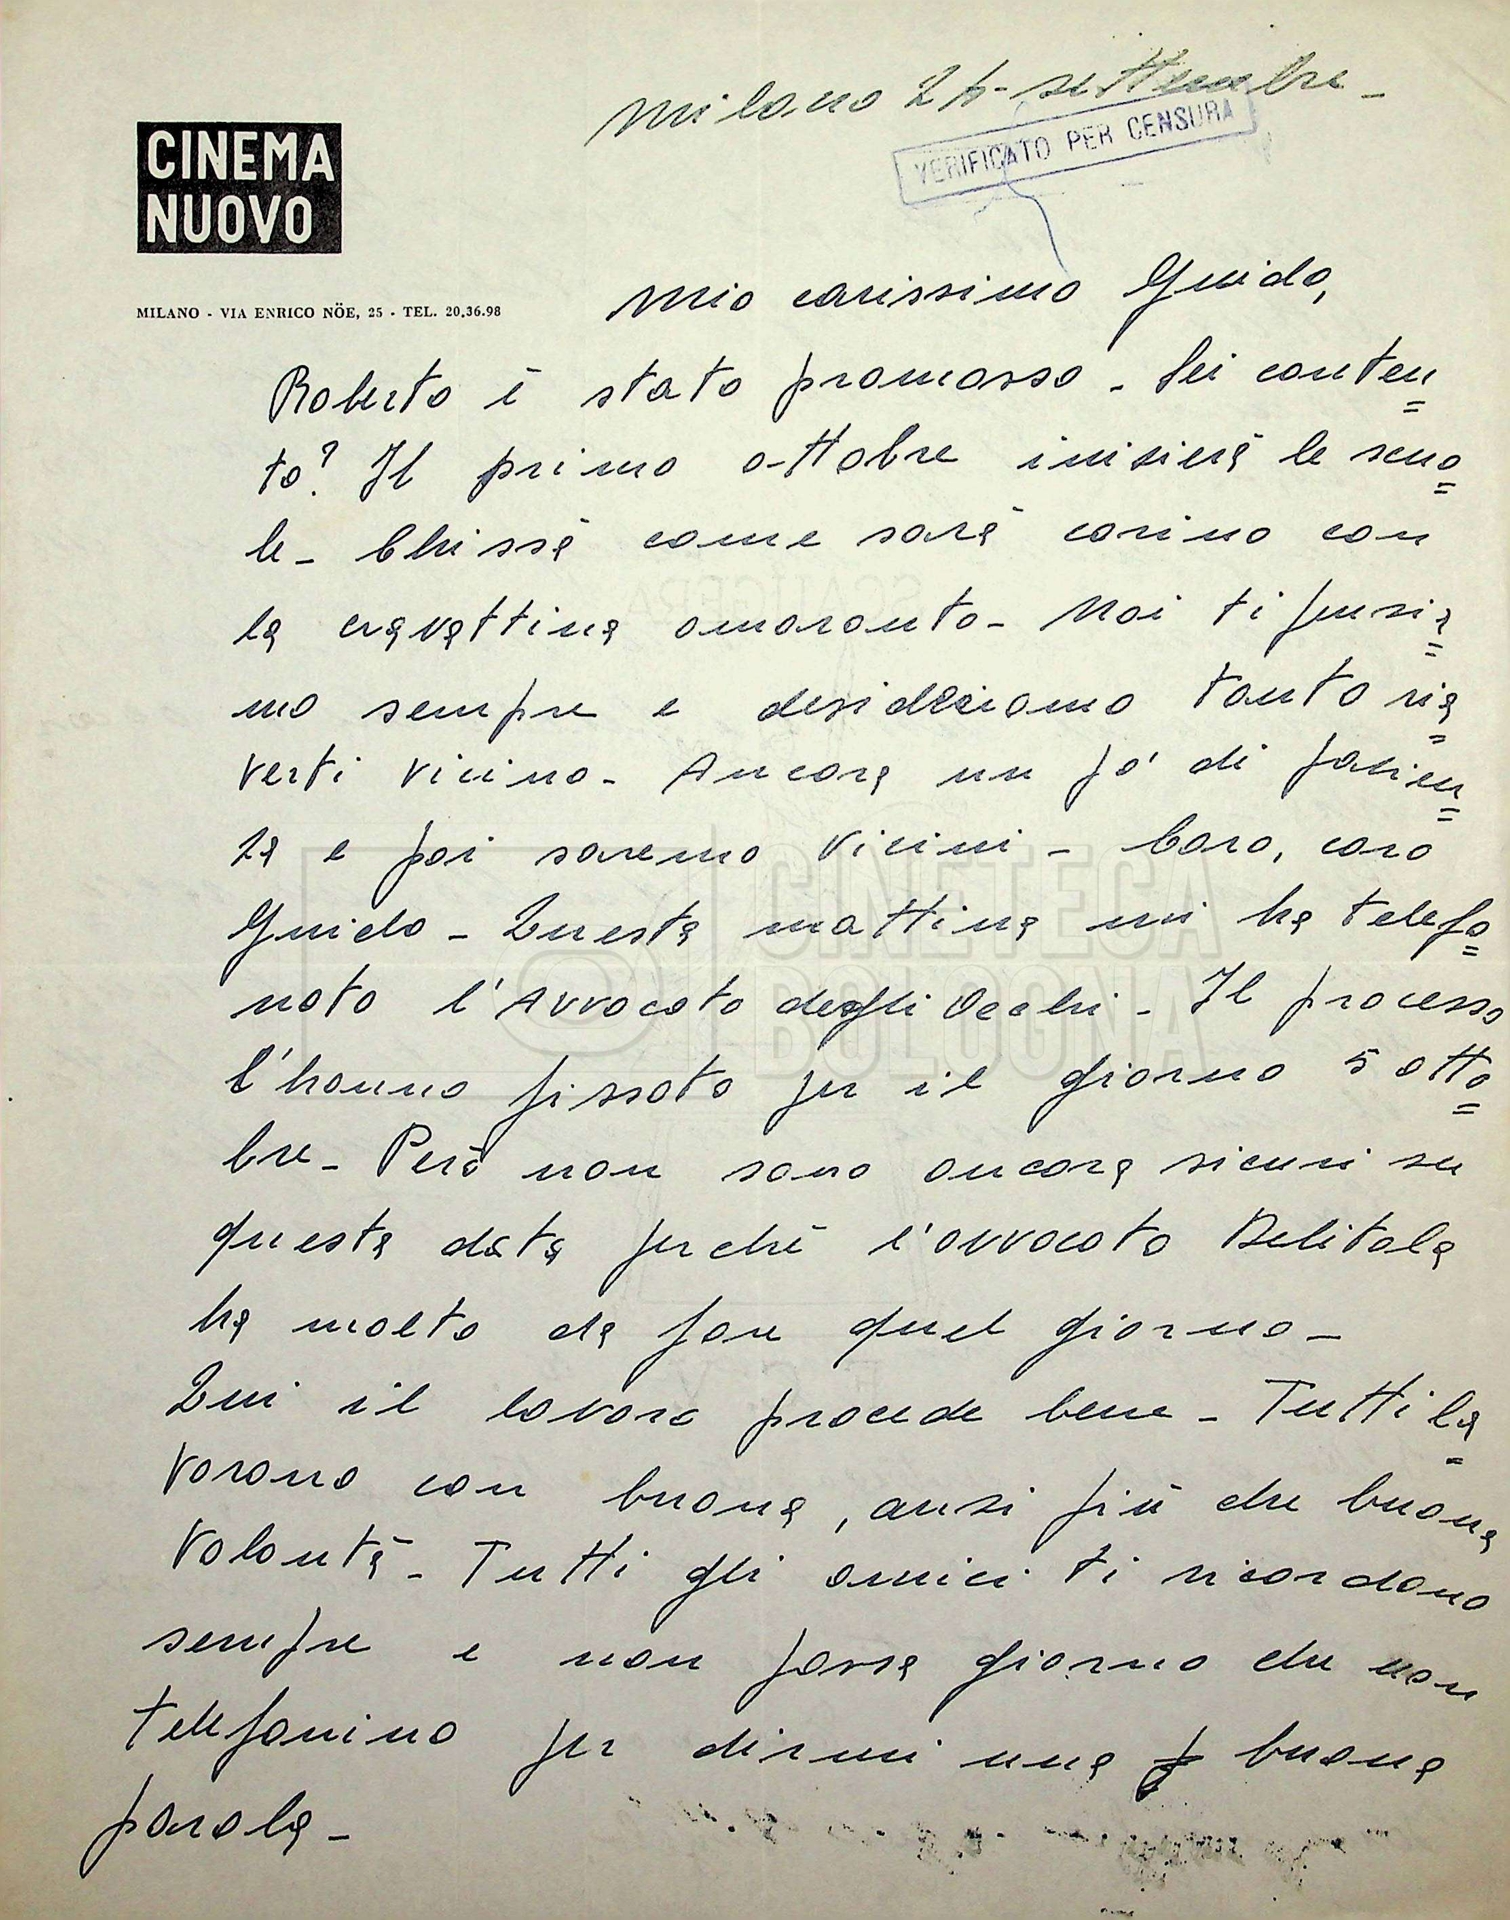 Milano 24 - settembre -
VERIFICATO PER CENSURA
CINEMA
NUOVO
MILANO - VIA ENRICO NÖE, 25 - TEL. 20.36.98
Mio carissimo Guido,
Roberto è stato promosso - Sei conten=
to? Il primo ottobre inizierà la scuo=
la - Chissà come sarà carino con
la cravattina amaranto - Noi ti pensia=
mo sempre e desideriamo tanto ria=
verti vicino - Ancora un pò di pazien=
za e poi saremo vicini - Caro, caro
Guido - Questa mattina mi ha telefo=
nato l'Avvocato degli Occhi - Il processo
l'hanno fissato per il giorno 5 otto=
bre - Però non sono ancora sicuri su
questa data perchè l'avvocato Delitala
ha molto da fare quel giorno -
Qui il lavoro procede bene - Tutti la=
vorano con buona, anzi più che buona
volontà - Tutti gli amici ti ricordano
sempre e non passa giorno che non
telefonino per dirmi una buona
parola -
CINETECA
BOLOGNA